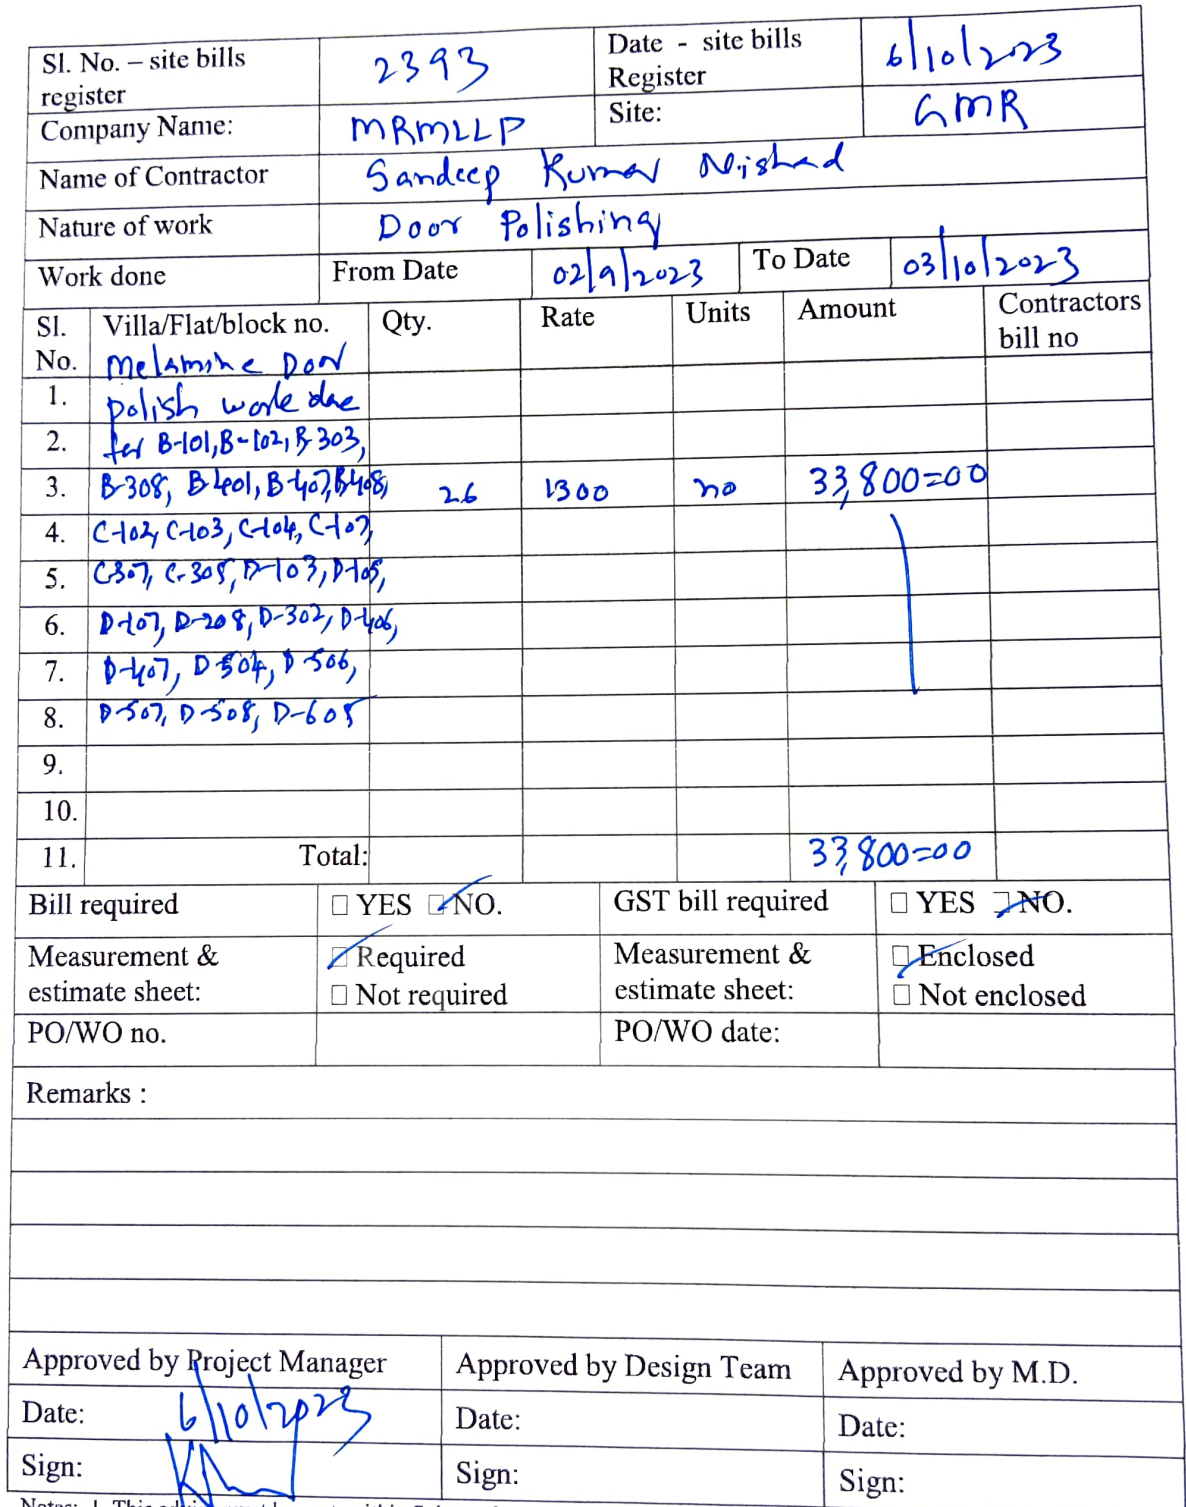 Sl. No. – site bills register 2393 Date - site bills Register 6/10/2023
Company Name: MRMLLP Site: GMR
Name of Contractor Sandeep Kumar Nishad
Nature of work Door Polishing
Work done From Date 02/9/2023 To Date 03/10/2023
Sl. No. Villa/Flat/block no. Qty. Rate Units Amount Contractors bill no
Melamine Door
1. polish work done
2. for B-101, B-102, B-303,
3. B-308, B-401, B-407, B-408, 26 1300 no 33,800=00
4. C-102, C-103, C-104, C-107,
5. C-307, C-305, D-103, D-105,
6. D-107, D-208, D-302, D-406,
7. D-407, D-504, D-506,
8. D-507, D-508, D-605
9.
10.
11. Total: 33,800=00
Bill required ☐ YES ☑ NO. GST bill required ☐ YES ☑ NO.
Measurement & estimate sheet: ☑ Required Measurement & estimate sheet: ☑ Enclosed
☐ Not required ☐ Not enclosed
PO/WO no. PO/WO date:
Remarks :
Approved by Project Manager Approved by Design Team Approved by M.D.
Date: 6/10/2023 Date: Date:
Sign: Sign: Sign: